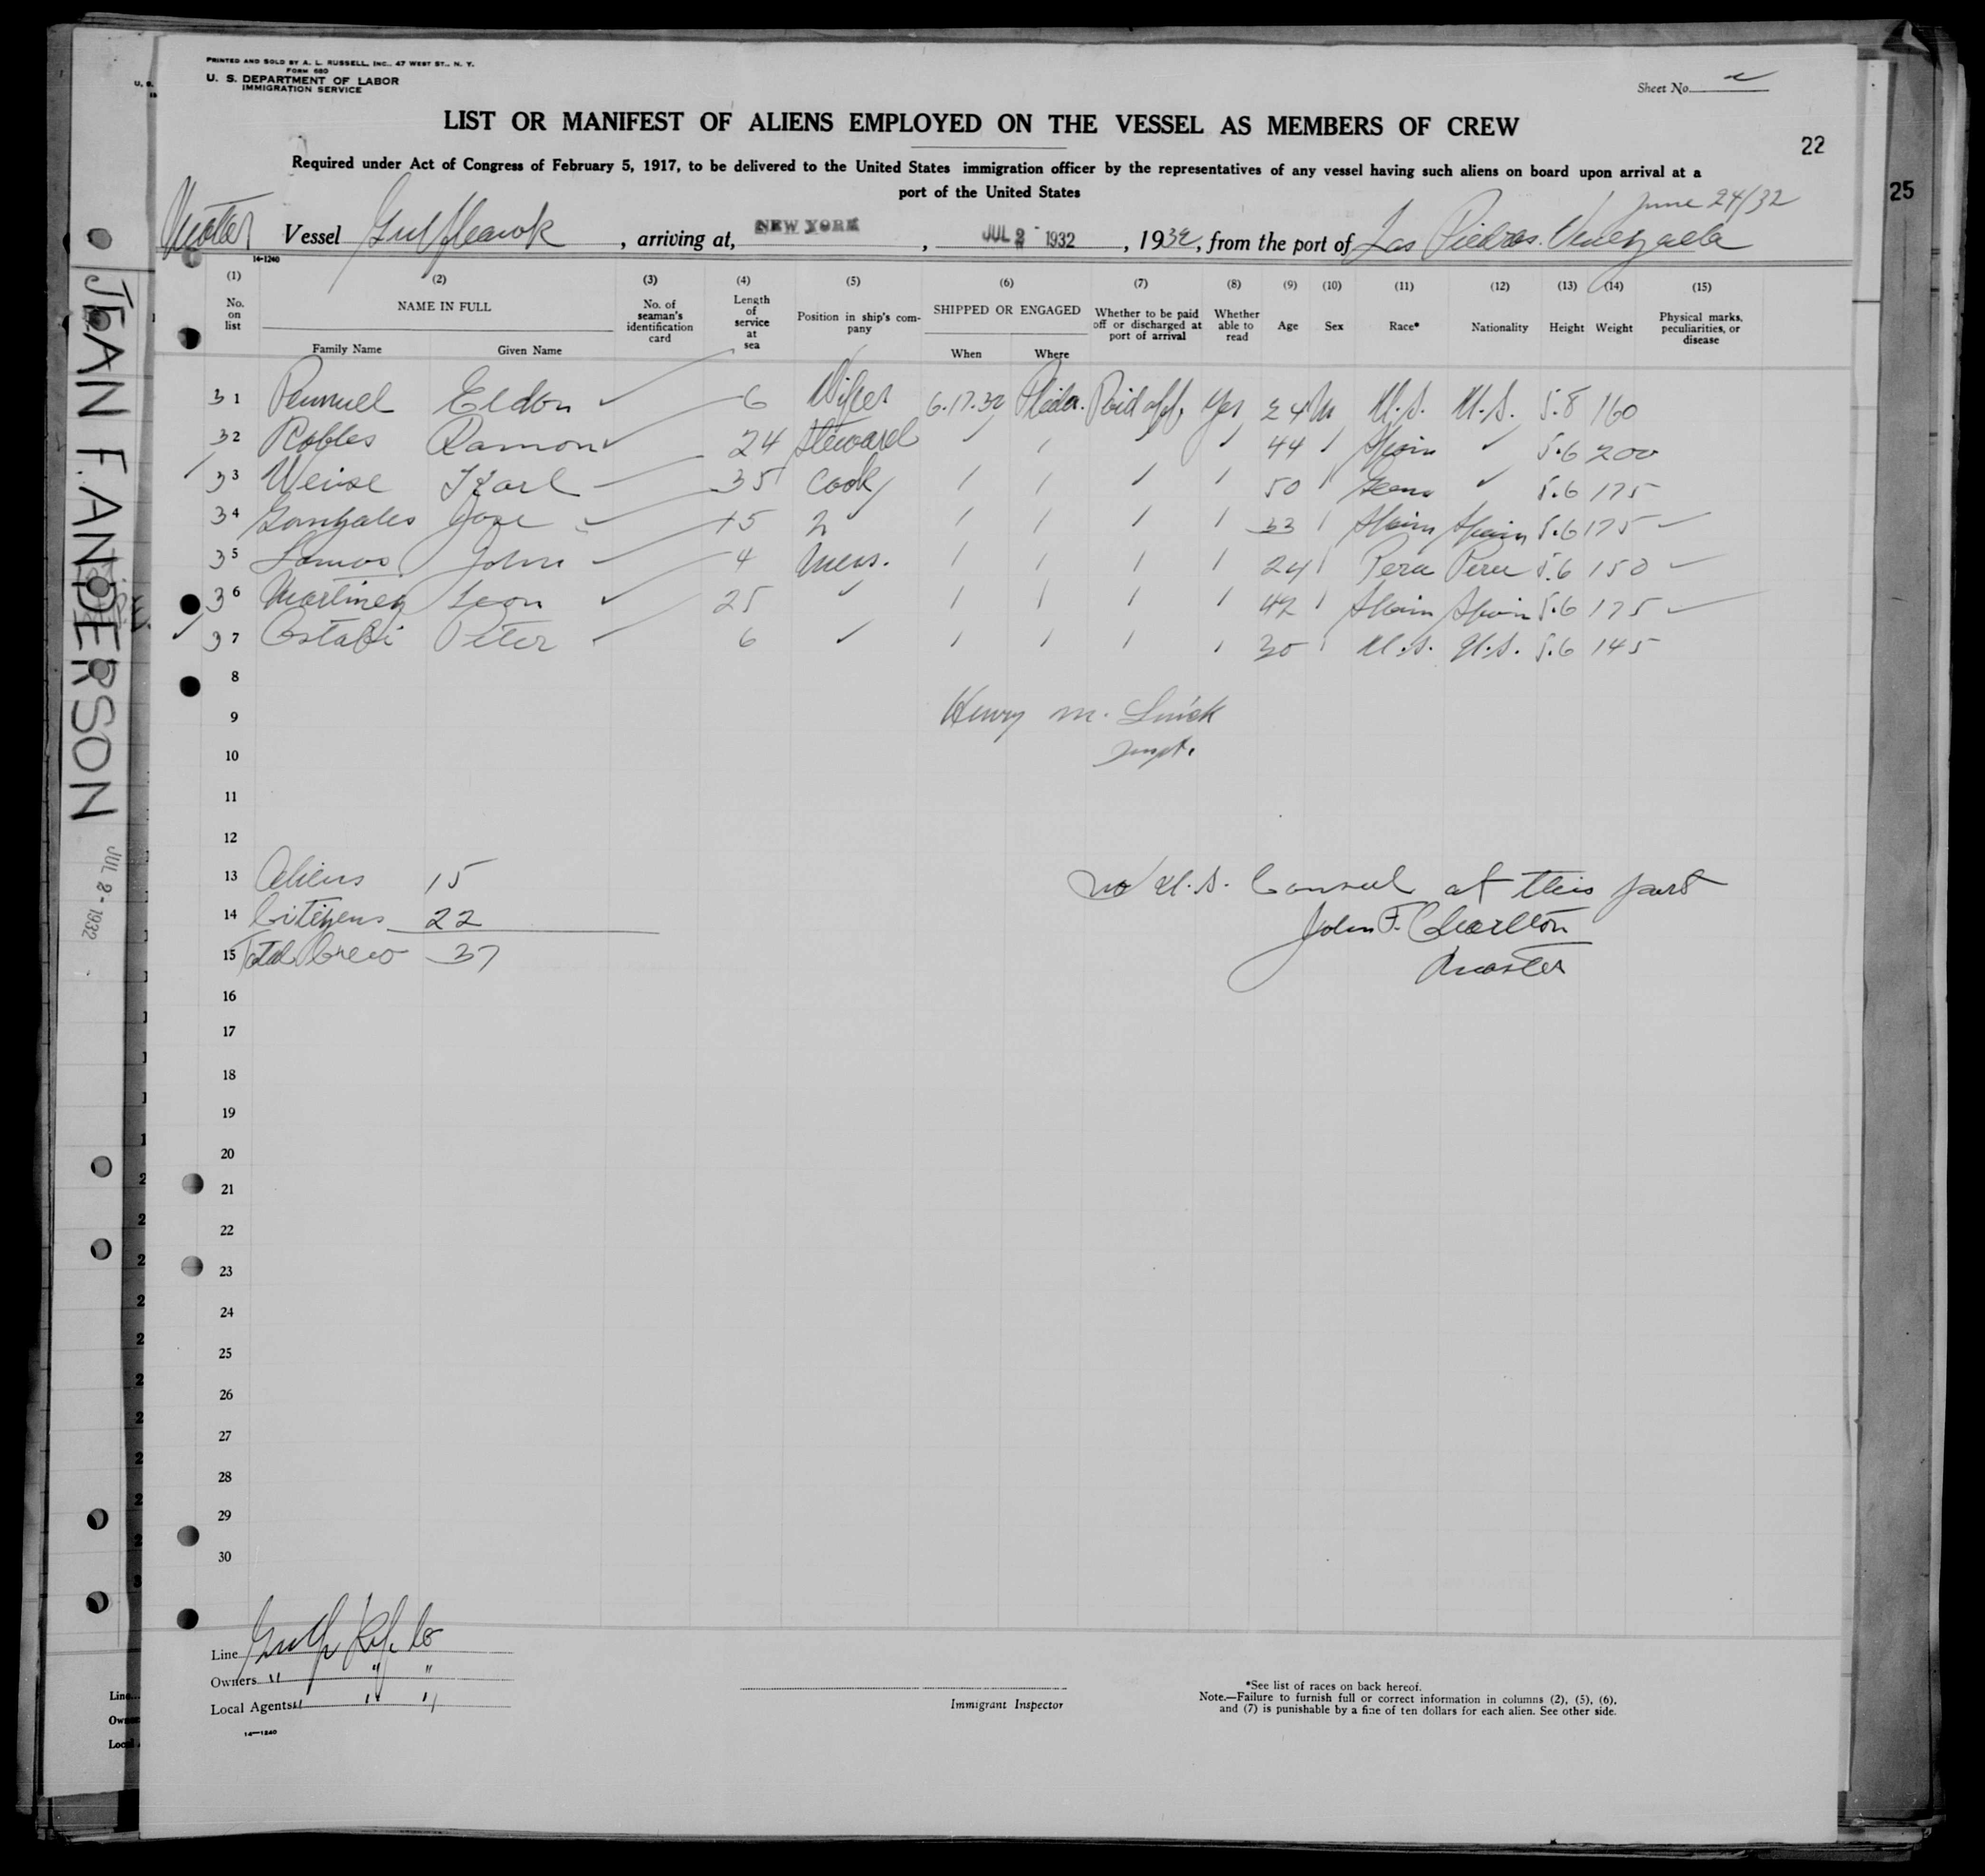 PRINTED AND SOLD BY A. L. RUSSELL, INC., 47 WEST ST., N. Y.
FORM 680
U. S. DEPARTMENT OF LABOR
IMMIGRATION SERVICE
Sheet No.
LIST OR MANIFEST OF ALIENS EMPLOYED ON THE VESSEL AS MEMBERS OF CREW
22
Required under Act of Congress of February 5, 1917, to be delivered to the United States immigration officer by the representatives of any vessel having such aliens on board upon arrival at a
port of the United States
25
June 24/32
Motor Vessel Gulfhawk, arriving at, NEW YORK, JUL 2 - 1932, 1932, from the port of Las Piedras. Venezuela
14-1240
(1) (2) (3) (4) (5) (6) (7) (8) (9) (10) (11) (12) (13) (14) (15)
No. on list NAME IN FULL Family Name Given Name No. of seaman's identification card Length of service at sea Position in ship's company SHIPPED OR ENGAGED When Where Whether to be paid off or discharged at port of arrival Whether able to read Age Sex Race* Nationality Height Weight Physical marks, peculiarities, or disease
31 Eldon ✓ 6 Wiper 6.17.32 Phila. Paid off, Yes 24 M U.S. U.S. 5.8 160
32 Robles Ramon ✓ 24 Steward ✓ 44 Spain ✓ 5.6 200
33 Weise Karl 35 Cook 50 ✓ 5.6 175
34 Gonzales Jose ✓ 15 2 33 Spain Spain 5.6 175 ✓
35 John 4 Mess. 24 Peru Peru 5.6 150 ✓
36 Martinez Leon ✓ 25 ✓ 42 Spain Spain 5.6 175 ✓
✓ 37 Peter ✓ 6 ✓ 30 U.S. U.S. 5.6 145
8
9 Henry M.
10
11
12
13 Aliens 15 no U.S. Consul at this port
14 Citizens 22 John F. Charlton
15 Total Crew 37 Master
16
17
18
19
20
21
22
23
24
25
26
27
28
29
30
Line Gulf Ref. Co
Owners " " "
Local Agents " " "
14-1240
Immigrant Inspector
*See list of races on back hereof.
Note.—Failure to furnish full or correct information in columns (2), (5), (6),
and (7) is punishable by a fine of ten dollars for each alien. See other side.
JEAN F. ANDERSON
JUL 2 - 1932